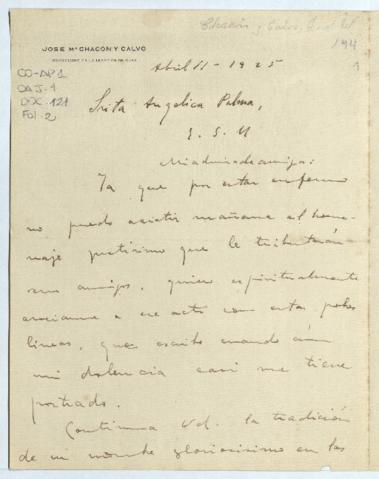 Chacón y Calvo, José Mª
1941
JOSE Mª CHACÓN Y CALVO
CO-AP1
CAJ-1
DOC-121
Fol-2
Abril 11-1925
Srta Angélica Palma,
E. S. M
Mi admirada amiga:
Ya que por estar enfermo
no puedo asistir mañana al home-
naje justísimo que le tributarán
sus amigos, quiero espiritualmente
asociarme a ese acto con estas pobres
líneas, que escribo cuando aún
mi dolencia casi me tiene
postrado.
Continua Vd. la tradición
de un nombre gloriosísimo en las